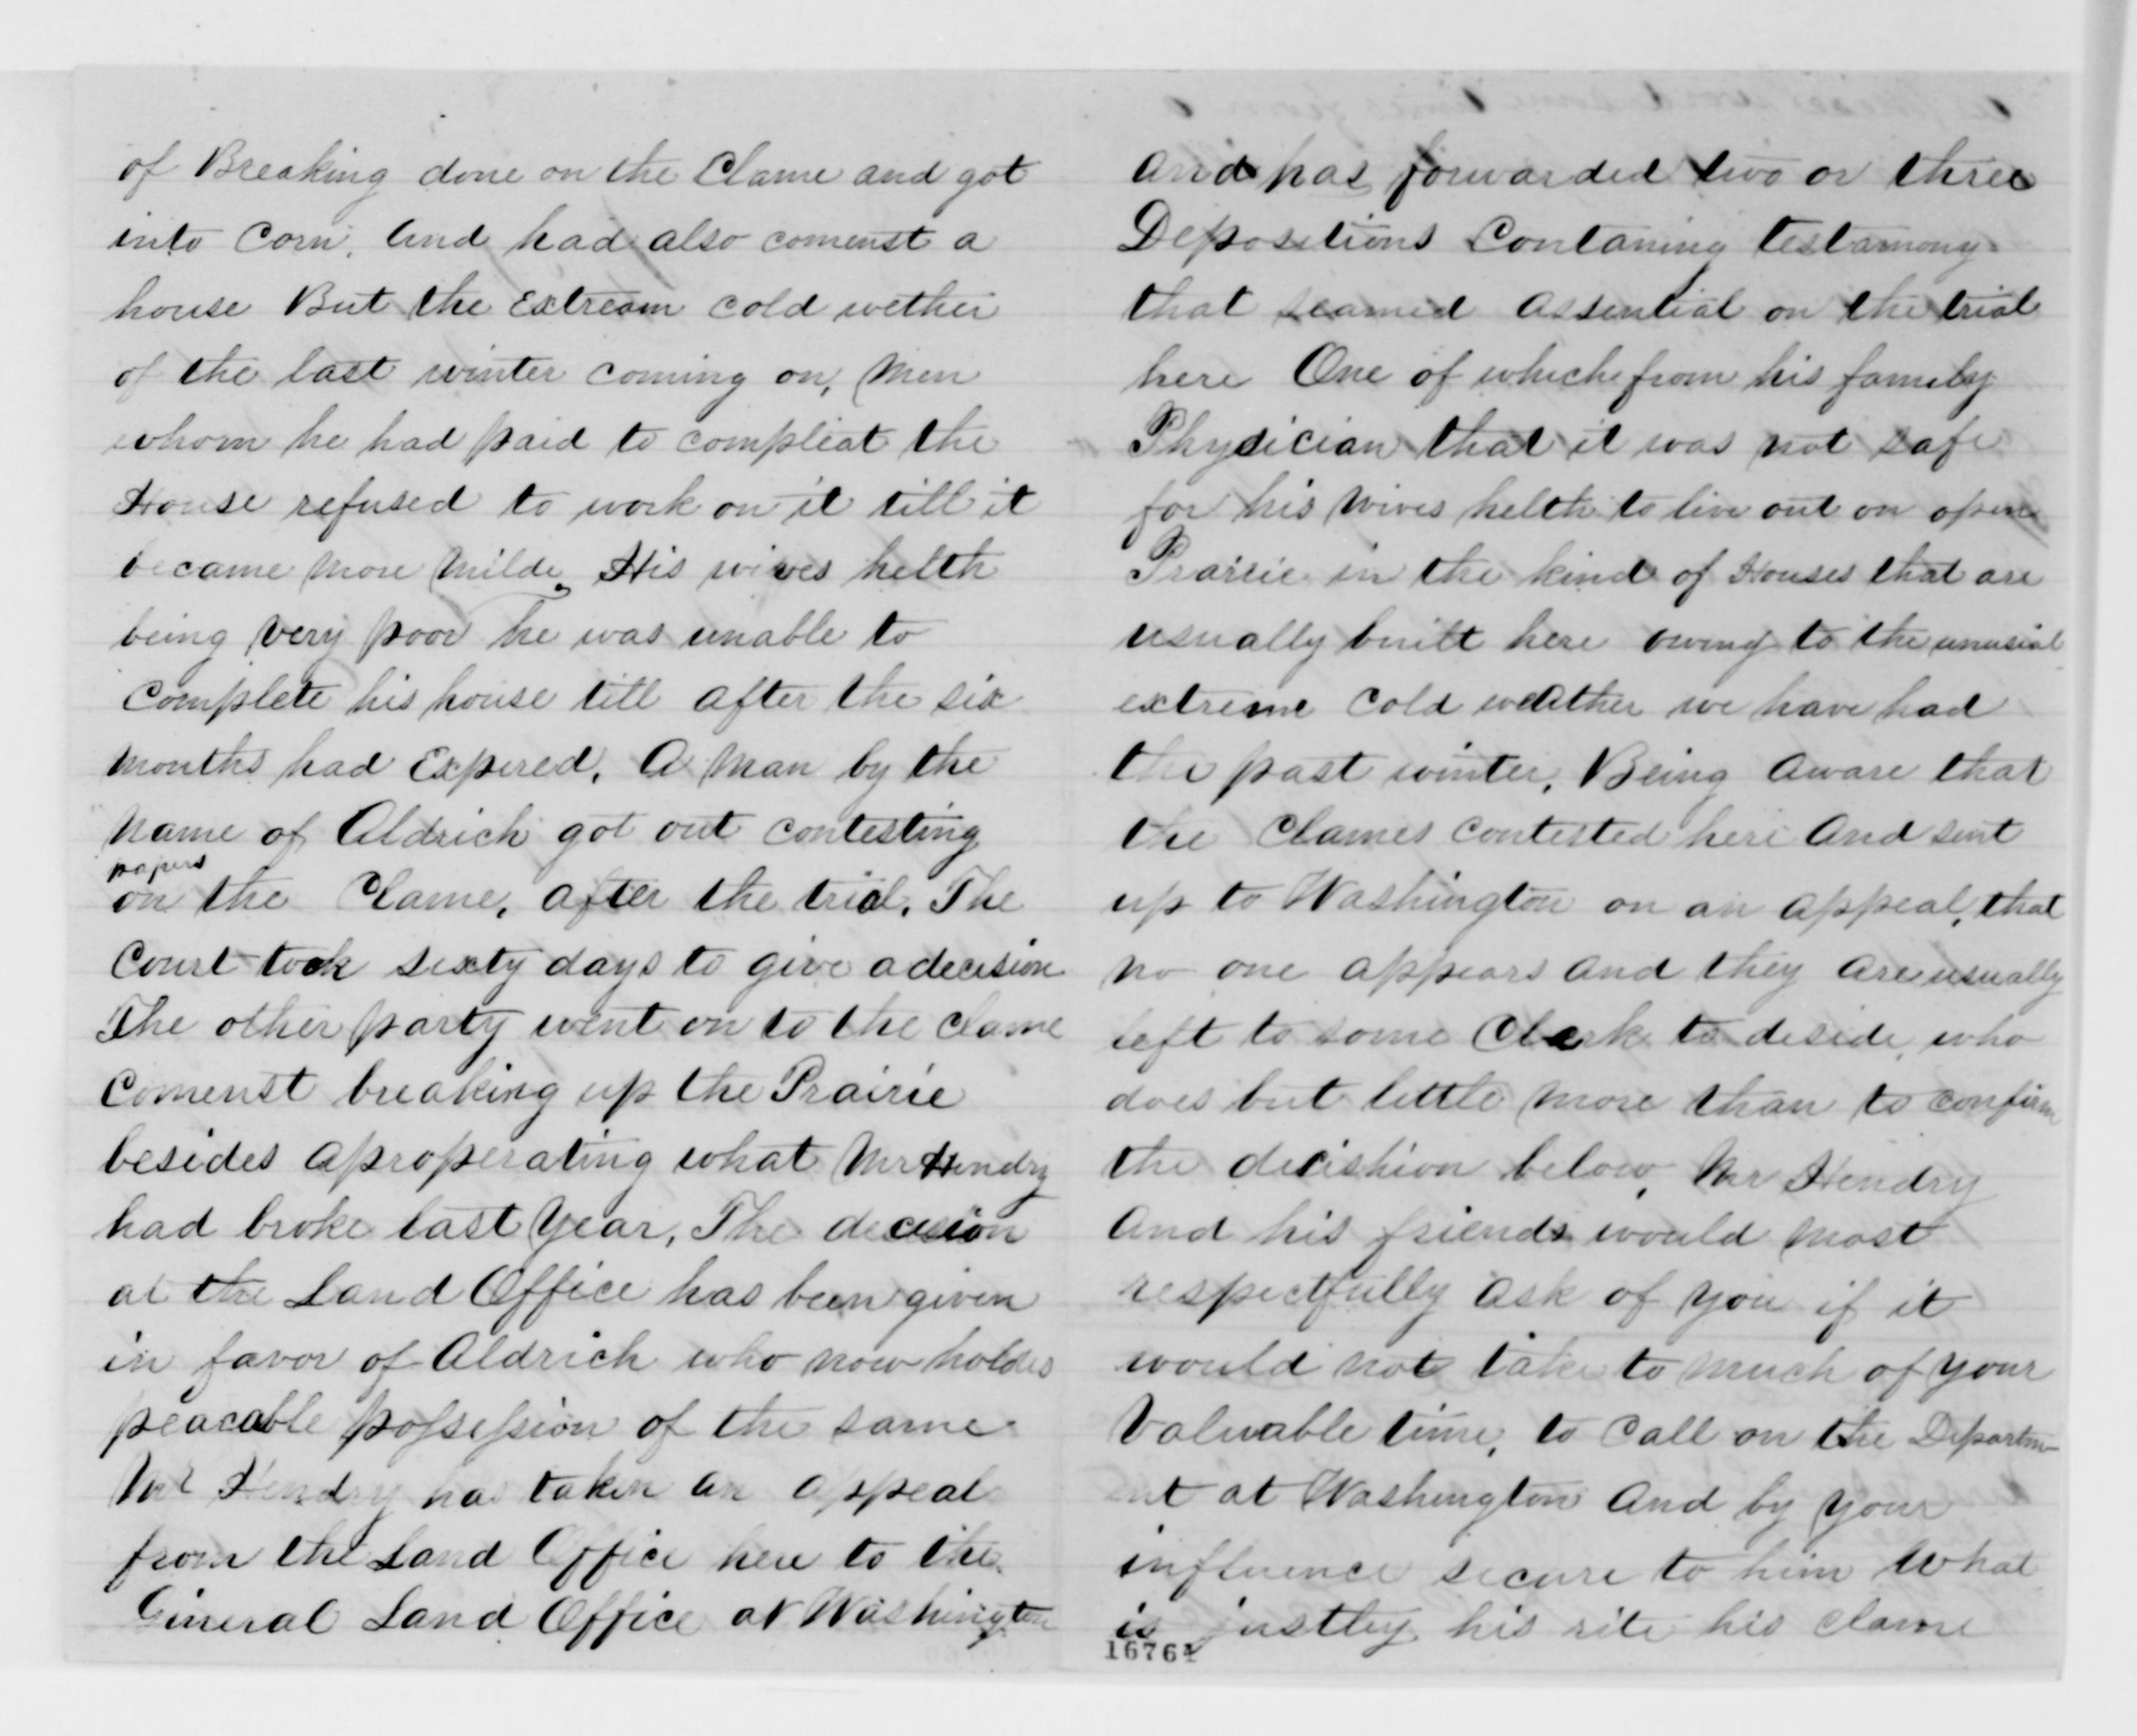 of Breaking done on the Clame and got
into Corn, and had also comenst a
house But the Extream cold wether
of the last winter coming on, Men
whom he had paid to compleat the
House refused to work on it till it
became more milde. His wives helth
being very poor he was unable to
complete his house till after the six
months had Expered. A man by the
name of Aldrich got out contesting
papers
on the Clame, after the trial. The
Court took sixty days to give a decision
The other party went on to the clame
Comenst breaking up the Prairie
besides aproperating what Mr Hendry
had broke last year, The decision
at the Land Office has been given
in favor of Aldrich who now holdes
peacable possession of the same
Mr Hendry has taken an appeal
from the Land Office here to the
General Land Office at Washington
and has forwarded two or three
Depositions Contaning testamony
that seamed assential on the trial
here One of which from his family
Physician that it was not safe
for his wives helth to live out on open
Prairie in the kind of Houses that are
usually built here owing to the unusial
extreme cold weather we have had
the past winter, Being aware that
the Clames contested here and sent
up to Washington on an appeal, that
no one appears and they are usually
left to some Clark to deside, who
does but little more than to confirm
the decishion below, Mr Hendry
and his friends would most
respectfully ask of you if it
would not take to much of your
Valuable time, to call on the Departm-
ent at Washington and by your
influence secure to him what
is justley his rite his clame
16761